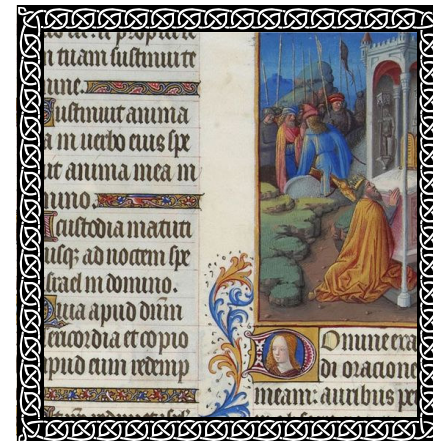 n tuam sustinui te
mine.
Sustinuit anima
a in uerbo eius spe
it anima mea in
mino.
A custodia matuti
usq; ad noctem spe
srael in domino.
Quia apud dñm
ericordia et copio
apud eum redemp
Domine exa
di oracione
meam: auribus pe